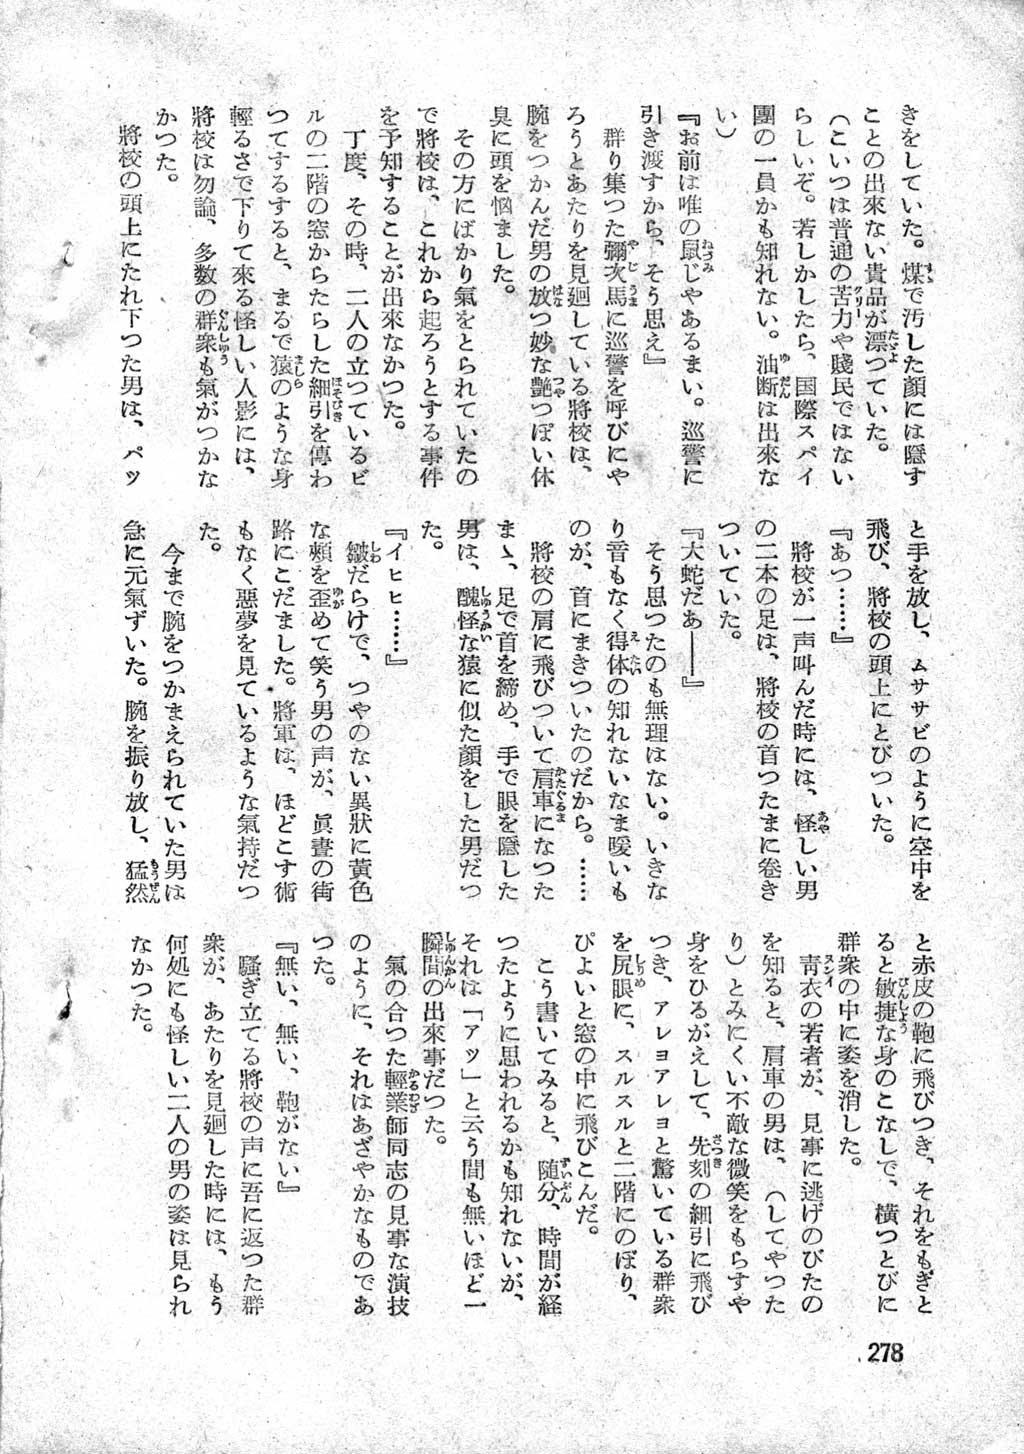 きをしていた。煤で汚した顔には隠す
ことの出來ない貴品が漂つていた。
（こいつは普通の苦力や賤民ではない
らしいぞ。若しかしたら、国際スパイ
團の一員かも知れない。油断は出來な
い）
『お前は唯の鼠じやあるまい。巡警に
引き渡すから、そう思え』
群り集つた彌次馬に巡警を呼びにや
ろうとあたりを見廻している將校は、
腕をつかんだ男の放つ妙な艶つぽい体
臭に頭を悩ました。
その方にばかり氣をとられていたの
で將校は、これから起ろうとする事件
を予知することが出來なかつた。
丁度、その時、二人の立つているビ
ルの二階の窓からたらした細引を傳わ
つてするすると、まるで猿のような身
輕るさで下りて来る怪しい人影には、
將校は勿論、多数の群衆も氣がつかな
かつた。
將校の頭上にたれ下つた男は、パッ
と手を放し、ムササビのように空中を
飛び、將校の頭上にとびついた。
『あつ……』
將校が一声叫んだ時には、怪しい男
の二本の足は、將校の首つたまに卷き
ついていた。
『大蛇だあ――』
そう思つたのも無理はない。いきな
り音もなく得体の知れないなま暖いも
のが、首にまきついたのだから。……
將校の肩に飛びついて肩車になつた
まゝ、足で首を締め、手で眼を隠した
男は、醜怪な猿に似た顔をした男だつ
た。
『イヒヒ……』
皺だらけで、つやのない異狀に黃色
な頰を歪めて笑う男の声が、眞晝の街
路にこだました。將軍は、ほどこす術
もなく惡夢を見ているような氣持だつ
た。
今まで腕をつかまえられていた男は
急に元氣ずいた。腕を振り放し、猛然
と赤皮の鞄に飛びつき、それをもぎと
ると敏捷な身のこなしで、橫つとびに
群衆の中に姿を消した。
靑衣の若者が、見事に逃げのびたの
を知ると、肩車の男は、（してやつた
り）とみにくい不敵な微笑をもらすや
身をひるがえして、先刻の細引に飛び
つき、アレヨアレヨと驚いている群衆
を尻眼に、スルスルと二階にのぼり、
ぴよいと窓の中に飛びこんだ。
こう書いてみると、随分、時間が経
つたように思われるかも知れないが、
それは「アッ」と云う間も無いほど一
瞬間の出來事だつた。
氣の合つた輕業師同志の見事な演技
のように、それはあざやかなものであ
つた。
『無い、無い、鞄がない』
騒ぎ立てる將校の声に吾に返つた群
衆が、あたりを見廻した時には、もう
何処にも怪しい二人の男の姿は見られ
なかつた。
278